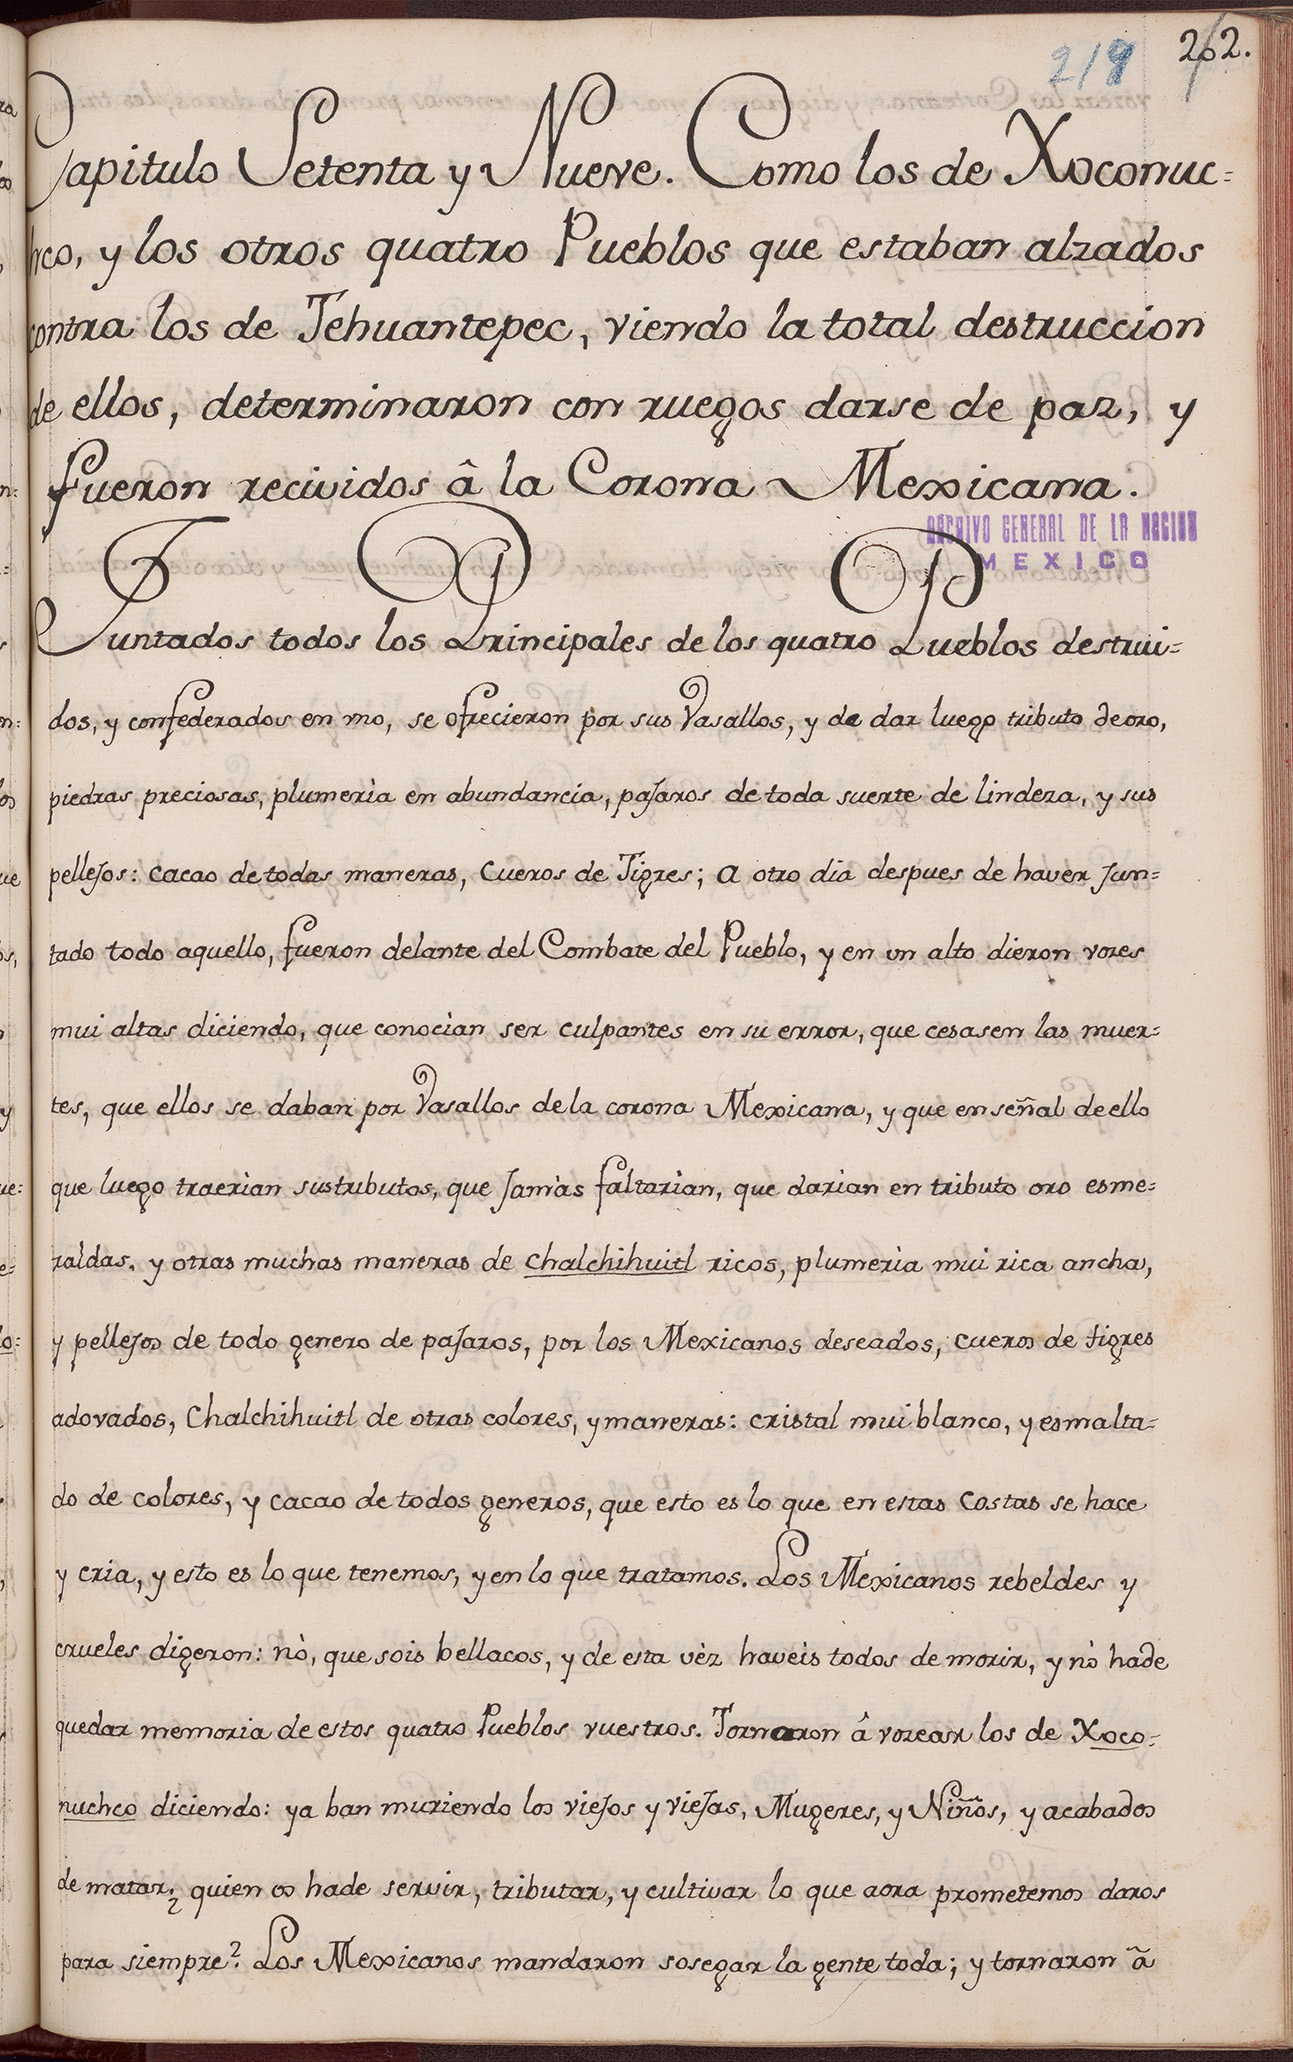 218 202.
Capitulo Setenta y Nueve. Como los de Xoconuc=
hco, y los otros quatro Pueblos que estaban alzados
contra los de Tehuantepec, viendo la total destruccion
de ellos, determinaron con ruegos darse de paz, y
fueron recividos â la Corona Mexicana.
ARCHIVO GENERAL DE LA NACION
MEXICO
Juntados todos los Principales de los quatro Pueblos destrui=
dos, y confederados en uno, se ofrecieron por sus Vasallos, y de dar luego tributo de oro,
piedras preciosas, plumerìa en abundancia, pajaros de toda suerte de lindeza, y sus
pellejos: cacao de todas maneras, Cueros de Tigres; a otro dia despues de haver Jun=
tado todo aquello, fueron delante del Combate del Pueblo, y en un alto dieron vozes
mui altas diciendo, que conocìan ser culpantes en su error, que cesasen las muer=
tes, que ellos se daban por Vasallos de la corona Mexicana, y que en señal de ello
que luego traerìan sus tributos, que Jamàs faltarìan, que darìan en tributo oro esme=
raldas, y otras muchas maneras de chalchihuitl ricos, plumerìa mui rica ancha,
y pellejos de todo genero de pajaros, por los Mexicanos deseados, cueros de tigres
adovados, Chalchihuitl de otras colores, y maneras: cristal mui blanco, y esmalta=
do de colores, y cacao de todos generos, que esto es lo que en estas Costas se hace
y cria, y esto es lo que tenemos, y en lo que tratamos. Los Mexicanos rebeldes y
crueles digeron: nò, que sois bellacos, y de esta vèz havèis todos de morir, y nò hade
quedar memoria de estos quatro Pueblos vuestros. Tornaron â vozear los de Xoco=
nuchco diciendo: ya ban muriendo los viejos y viejas, Mugeres, y Niños, y acabados
de matar, ¿quien os hade servir, tributar, y cultivar lo que aora prometemos daros
para siempre? Los Mexicanos mandaron sosegar la gente toda; y tornaron â